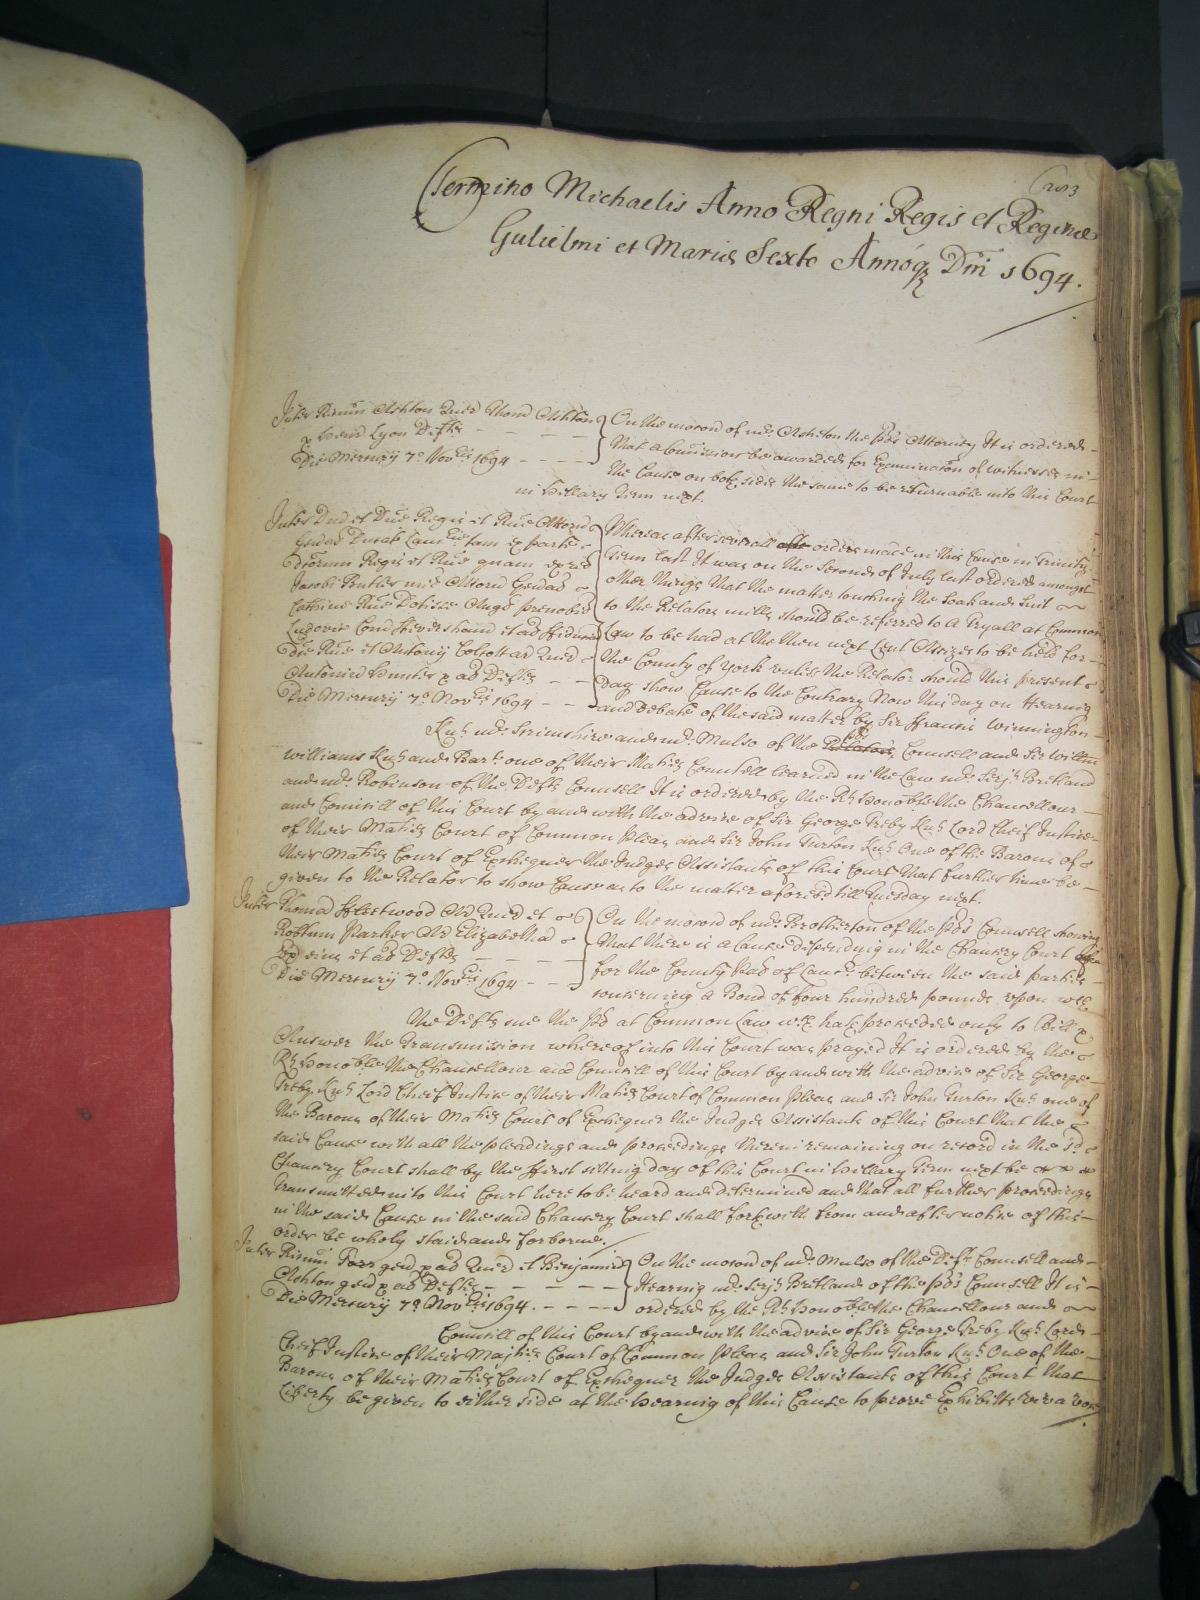 Termino Michaelis Anno Regni Regis et Reginæ
Gulielmi et Mariæ Sexto Annoq Dni 1694.
Inter Ricum Ashton Quer Thom Ashton
Henr Lyon Defts
Die Mercurij 7º Novbris 1694
On the mocon of mr Ashton the pts Attorney It is ordered
that a Comission be awarded for Examinacon of witnesses in
the Cause on both sides the same to be returnable into this Court
in Hillary Terme next.
Inter Dnd et Dnæ Regis et Rnæ Attornd
Genlem Ducat Lancrie tam ex parte
Dcorum Regis et Rnæ quam ex rel
Jacobi mil Attornd Genlem
Catherinæ Rnæ Angl prenobil
Ludovic Com Feversham et al
Die Rnæ et Antonij ad Quer
Antonium Hunter & al Defts
Die Mercurij 7º Novbris 1694
Whereas after severall orders made in this Cause in Trinity
Terme last It was on the Second of July last ordered amongst
other things That the matter touching the Soak and Suit
to the Relators mills should be referred to a Tryall at Common
Law to be had at the then next Lent Assizes to be held for
the County of York unless the Relator should this present
Day show Cause to the Contrary Now this day on Hearing
and Debate of the said matter by Sir Francis Winnington
Knt mr and mr Mulso of the Relators Counsell and Sir Willm
Williams Knt and Bart one of their Maties Counsell learned in the Law mr Serjt Bretland
and mr Robinson of the Defts Counsell It is ordered by the Rt Honoble the Chancellour
and Councill of this Court by and with the advice of Sir George Treby Knt Lord Cheif Justice
of their Maties Court of Common Pleas and Sir John Turton Knt One of the Barons of
their Maties Court of Exchequer the Judges Assistants of this Court That further time be
given to the Relator to show Cause as to the matter aforesd till Tuesday next.
Inter Thomd Fleetwood Ar Quer et
Robtum Parker Ar Elizabetha
Ux eius et al Defts
Die Mercurij 7º Novbris 1694
On the mocon of mr Brotherton of the pts Counsell showing
that there is a Cause depending in the Chancery Court
for the County Pal of Lancr between the said parties
concerning a Bond of four hundred pounds upon wch
the Defts sue the pt at Common Law wch hath proceeded only to Bill &
Answer the Transmission whereof into this Court was prayed It is ordered by the
Rt Honoble the Chancellour and Councill of this Court by and with the advice of Sir George
Treby Knt Lord Cheif Justice of their Maties Court of Common Pleas and Sir John Turton Knt one of
the Barons of their Maties Court of Exchequer the Judges Assistants of this Court that the
said Cause with all the pleadings and proceedings therein remaining on record in the sd
Chancery Court shall by the ffirst sitting day of this Court in Hillary Terme next be
transmitted into this Court here to be heard and determined and that all further proceedings
in the said Cause in the said Chancery Court shall forthwith from and after notice of this
order be wholy staid and forborne.
Inter Ricum gend & al Quer et Benjamin
Ashton gend & al Defts
Die Mercurij 7º Novbris 1694.
On the mocon of mr Mulso of the Defts Counsell and
Hearing mr Serjt Bretland of the pts Counsell It is
ordered by the Rt Honoble the Chancellour and
Councill of this Court by and with the advice of Sir George Treby Knt Lord
Cheif Justice of their Majties Court of Common Pleas and Sir John Turton Knt One of the
Barons of their Maties Court of Exchequer the Judges Assistants of this Court that
Liberty be given to either side at the Hearing of this Cause to prove Exhibitts viva voce